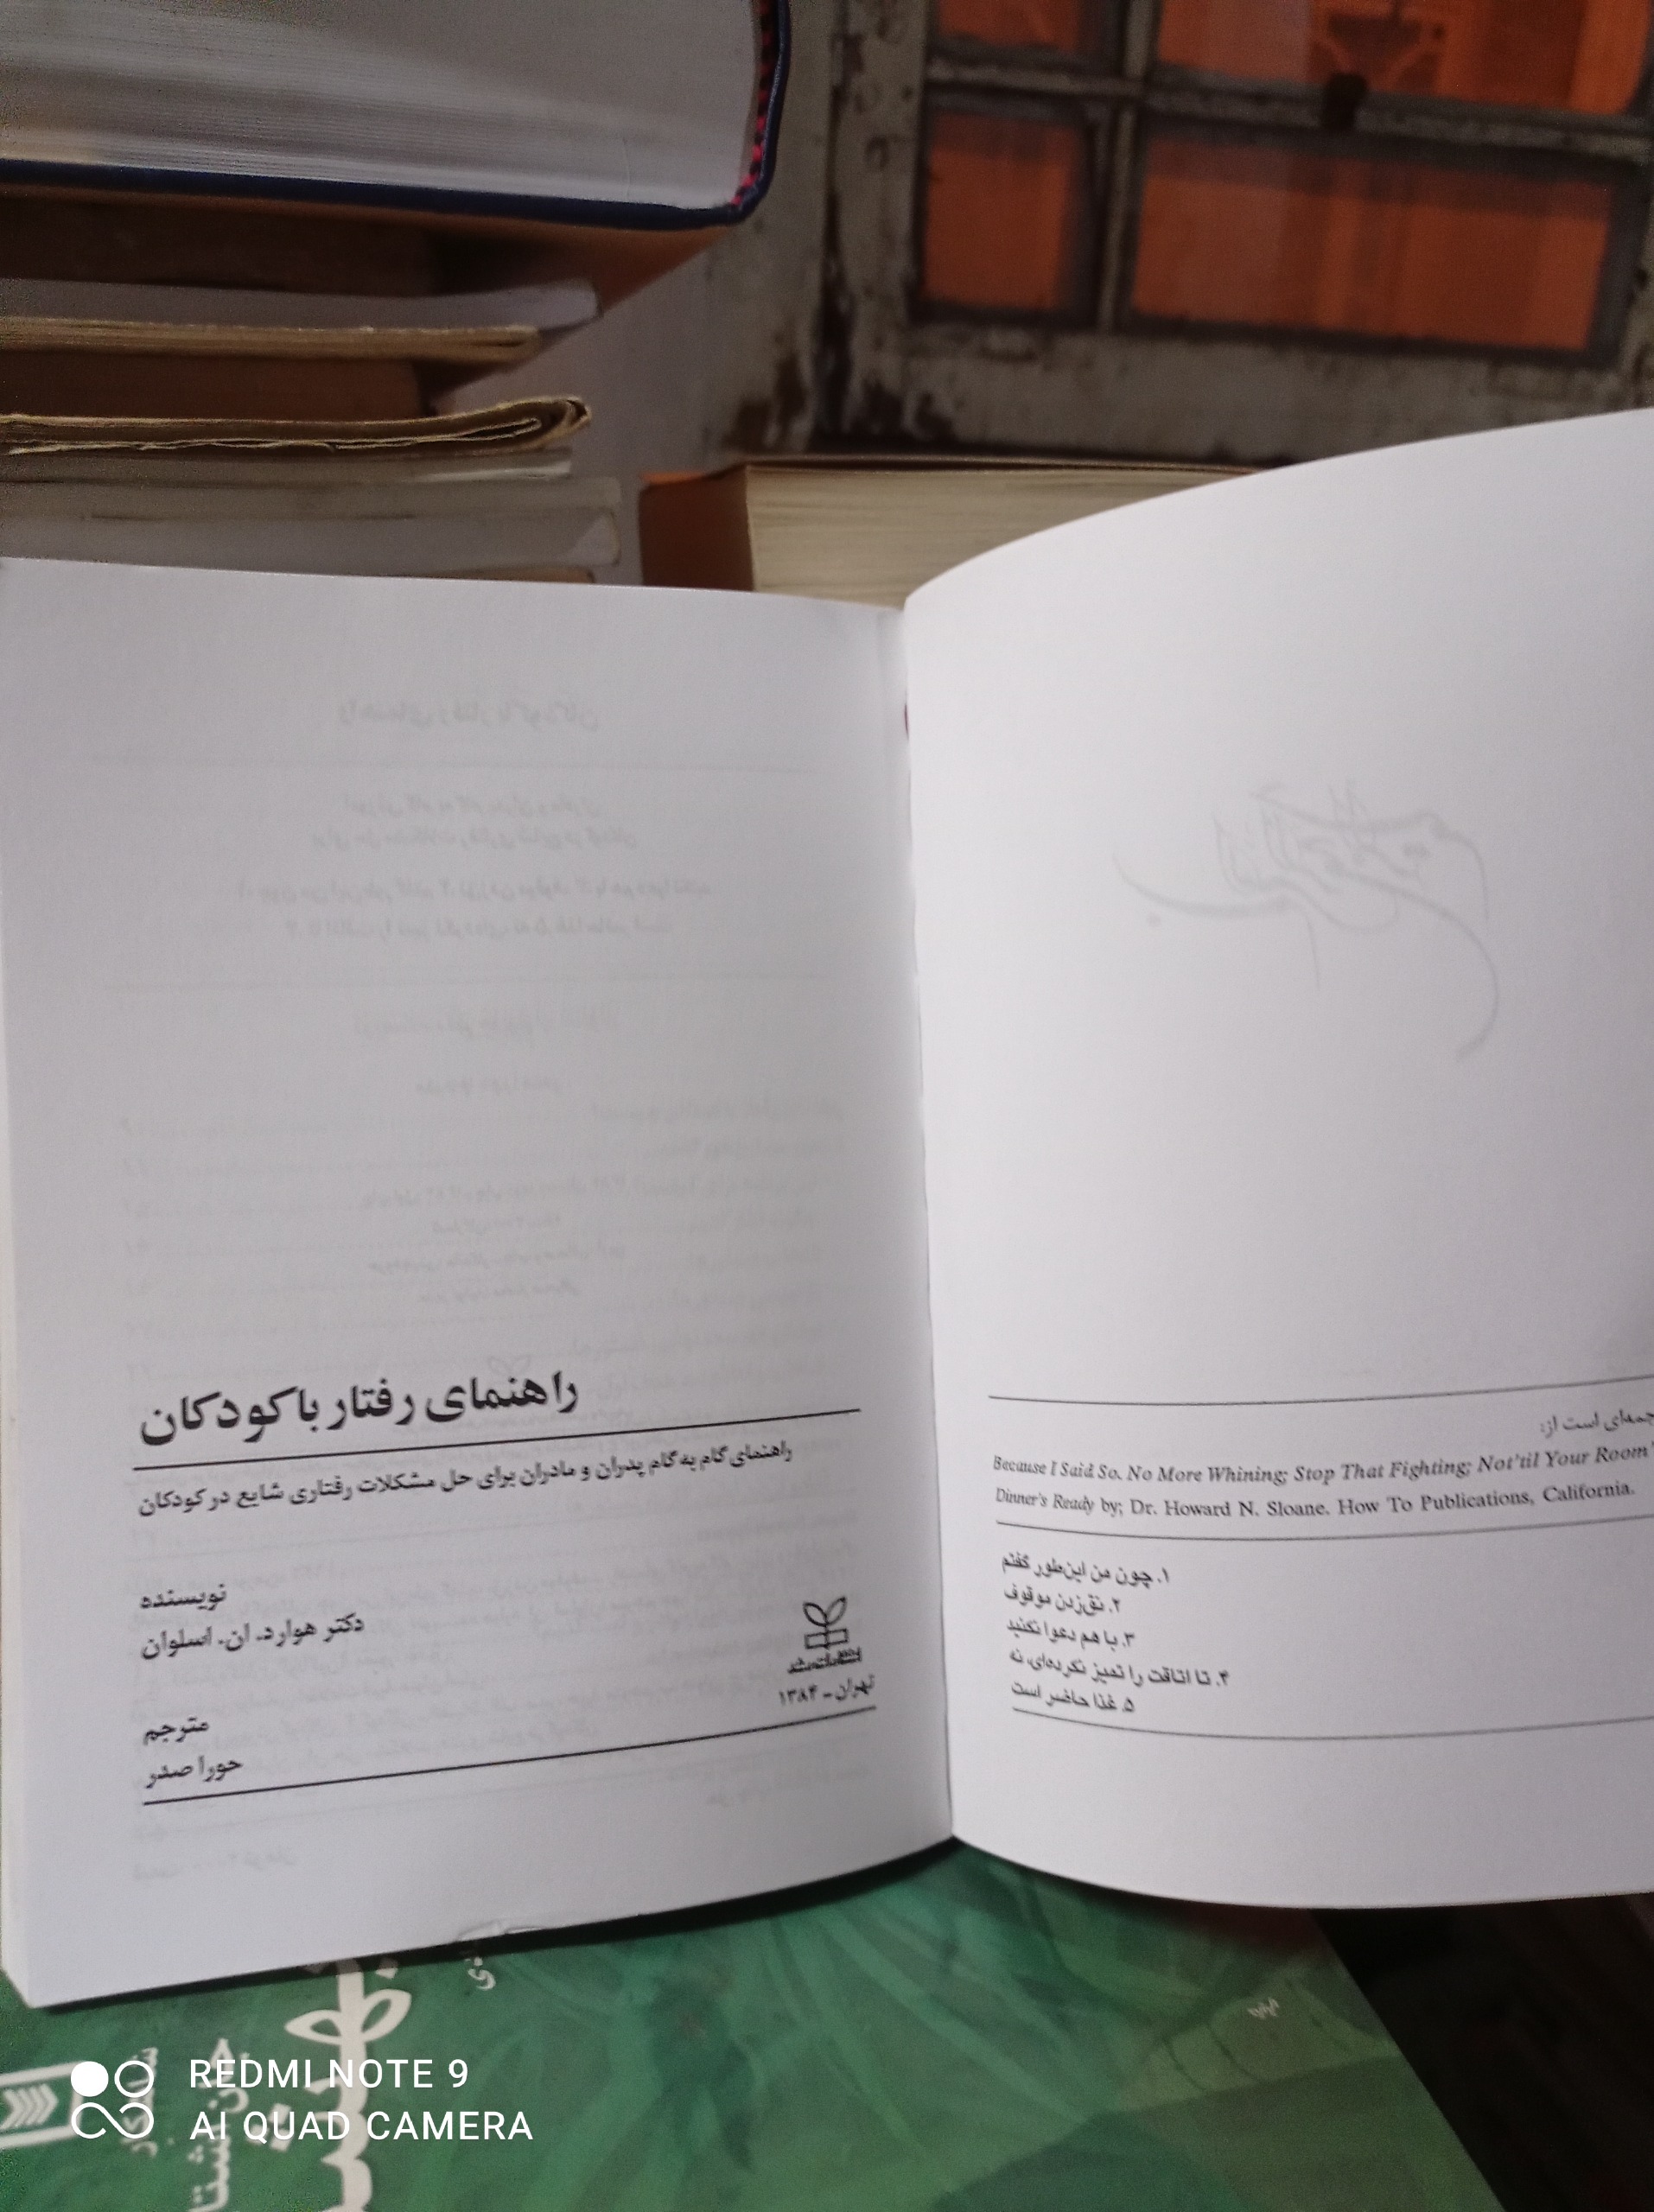 راهنمای رفتار با کودکان
راهنمای گام به گام پدران و مادران برای حل مشکلات رفتاری شایع در کودکان
نویسنده
دکتر هوارد. ان. اسلوان
مترجم
حورا صدر
انتشارات رشد
تهران - ۱۳۸۴
است از:
Because I Said So. No More Whining; Stop That Fighting; Not'til Your Room'
Dinner's Ready by; Dr. Howard N. Sloane. How To Publications, California.
۱. چون من این‌طور گفتم
۲. نق‌زدن موقوف
۳. با هم دعوا نکنید
۴. تا اتاقت را تمیز نکرده‌ای، نه
۵. غذا حاضر است
REDMI NOTE 9
AI QUAD CAMERA